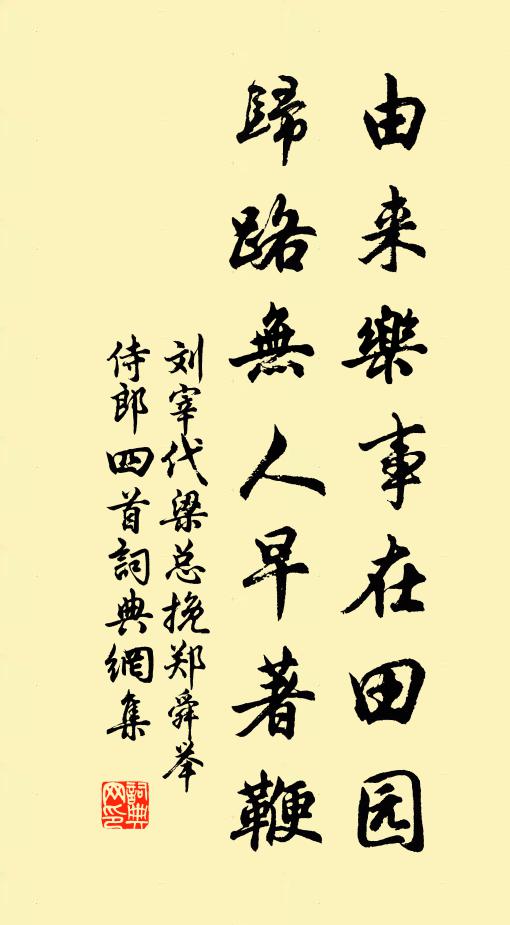 由来樂事在田园
歸路無人早著鞭
刘宰代梁总挽郑舜举
侍郎四首詞典網集
詞典
网印